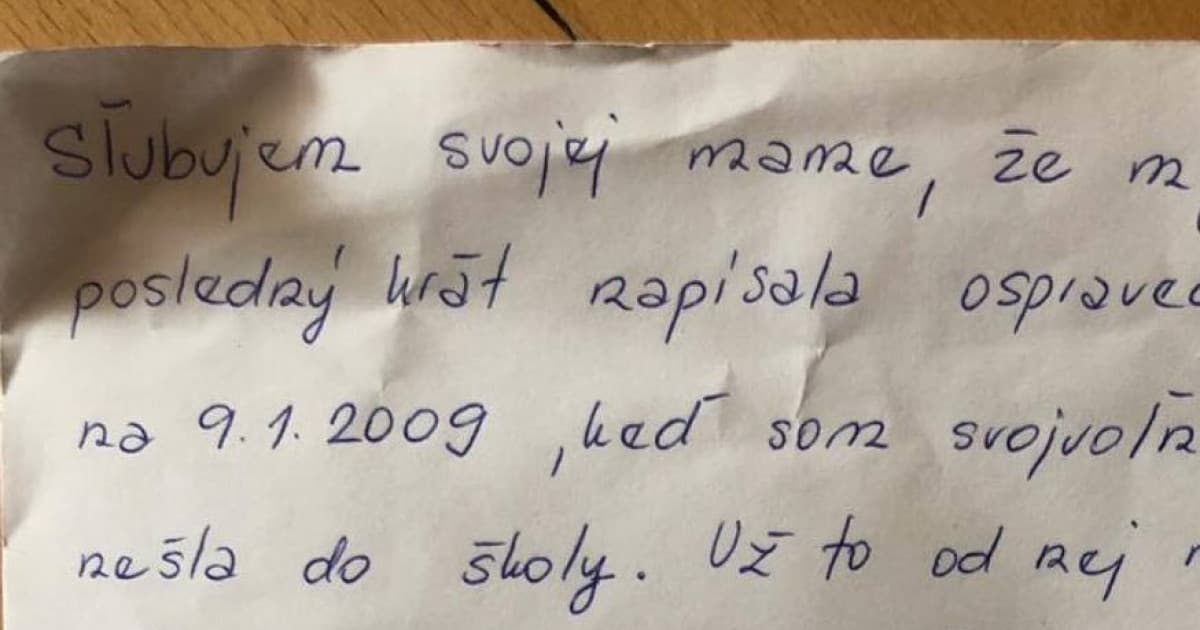 Sľubujem svojej mame, že
posledný krát napísala
na 9.1.2009, keď som
nešla do školy. Už to od nej